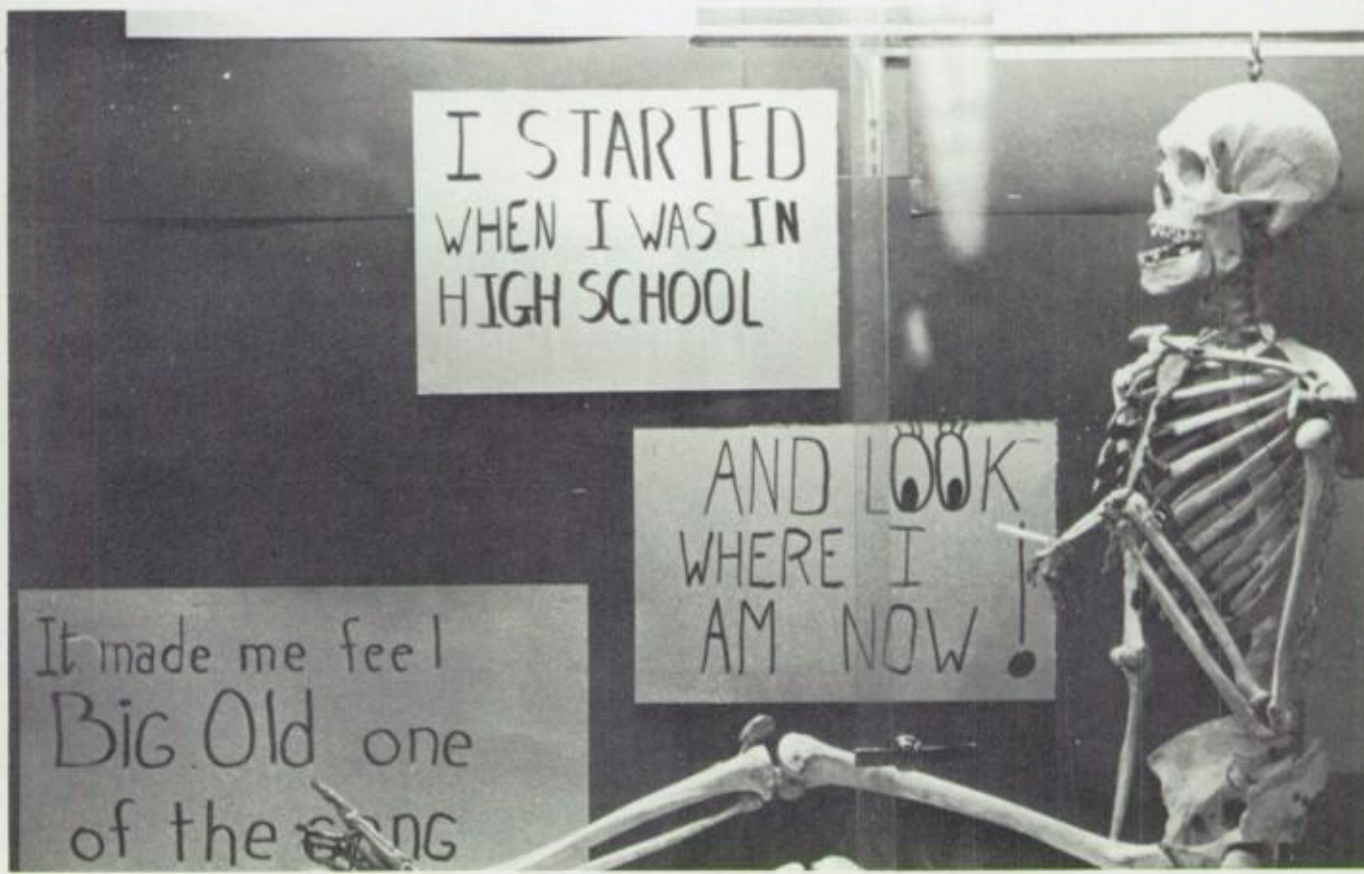 I STARTED
WHEN I WAS IN
HIGH SCHOOL
AND LOOK
WHERE I
AM NOW !
It made me feel
BiG Old one
of the gang